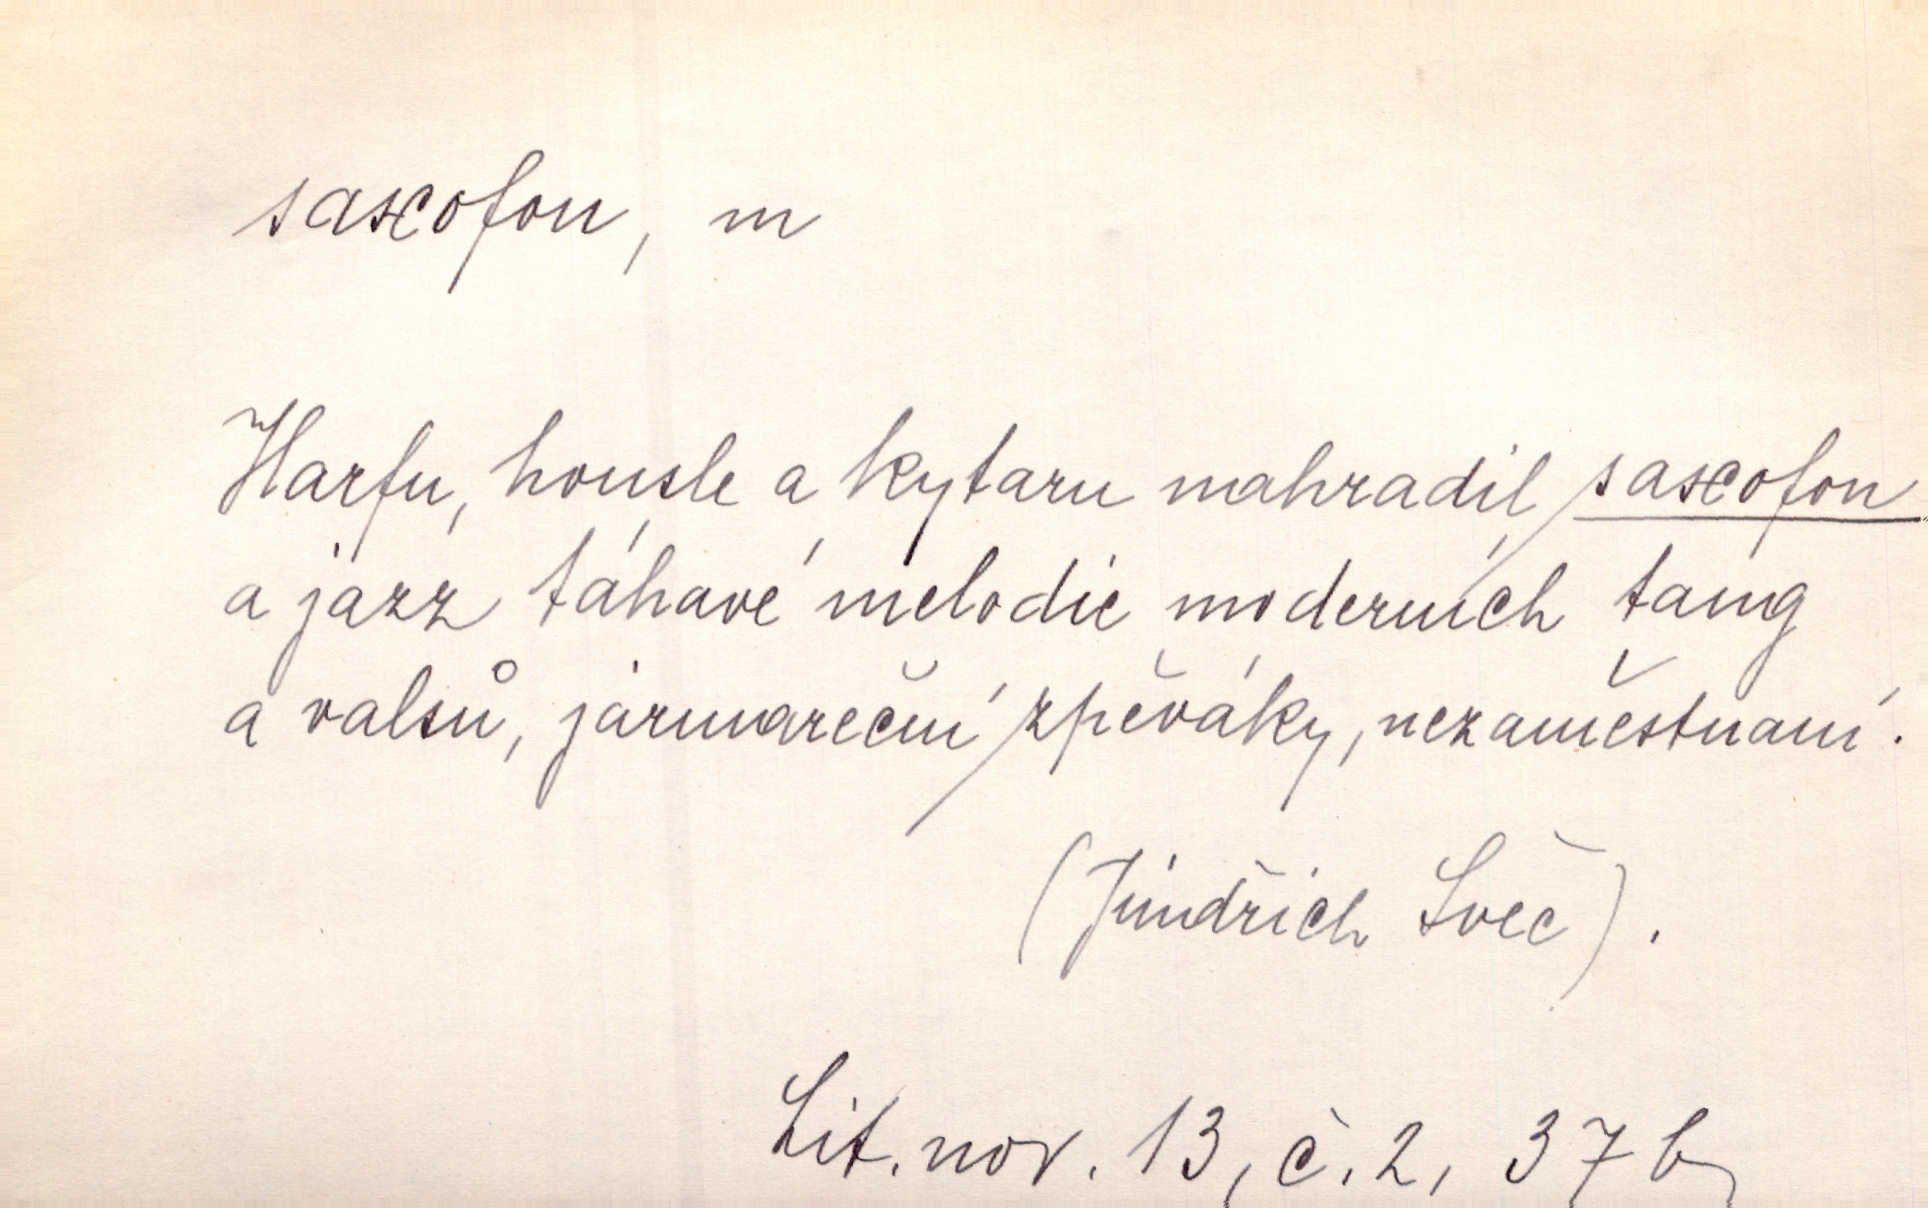 saxofon, m
Harfu, housle a kytaru nahradil saxofon
a jazz táhavé melodie moderních tang
a valsů, jarmareční zpěváky, nezaměstnaní.
(Jindřich Švec).
Lit. nov. 13, č. 2, 37 b